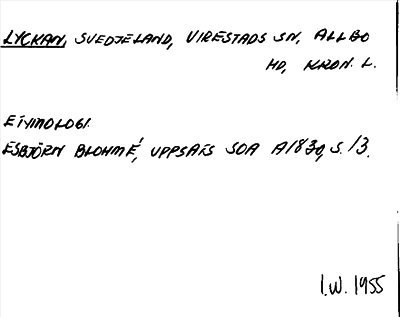 LYCKAN, SVEDJELAND, VIRESTADS SN, ALLBO
HD, KRON. L.
ETYMOLOGI.
ESBJÖRN BLOHMÉ, UPPSATS SOA A1830, S. 13.
I.W. 1955